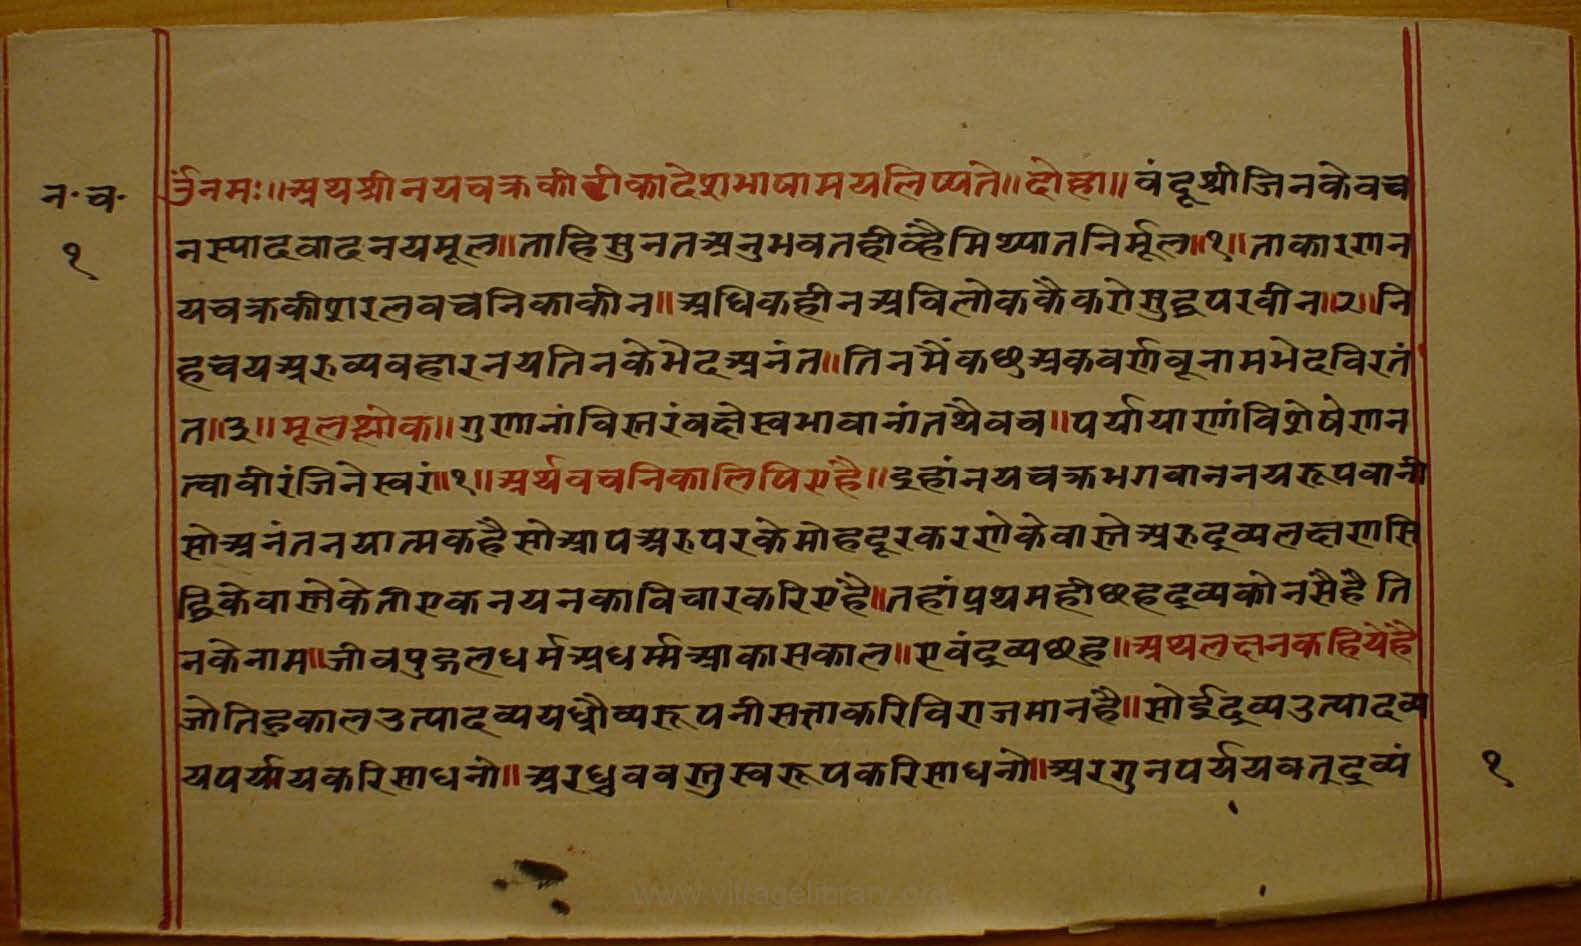 न॰च॰
१
र्उनमः॥अथश्रीनयचक्रकीटीकादेशभाषामयलिष्यते॥दोहा॥वंदूश्रीजिनकेवच
नस्पादवादनयमूल॥ताहिसुनतअनुभवतहीव्हैमिथ्यातनिर्मूल॥१॥ताकारणन
यचक्रकीशरलवचनिकाकीन॥अधिकहीनअविलोककैकरोसुद्धपरवीन॥२॥नि
हचयअरुव्यवहारनयतिनकेभेदअनंत॥तिनमैंकछुअकवर्णवूनामभेदविरतं
त॥३॥मूलश्लोक॥गुणानांविस्तरंवक्षेस्वभावानांतथैवच॥पर्यायाणंविशेषेणन
त्वावीरंजिनेस्वरां॥१॥अर्थवचनिकालिपिएहै॥इहांनयचक्रभगवाननयरूपवानी
सोअनंतनयात्मकहैसोआपअरुपरकेमोहदूरकरणेकेवास्तेअरुद्रव्यलक्षणसि
द्धिकेवास्तेकेतीएकनयनकाविचारकरिएहै॥तहांप्रथमहीछहद्रव्यकोनसैहैति
नकेनाम॥जीवपुद्गलधर्मअधर्म्मआकासकाल॥एवंद्रव्यछह॥अथलक्षनकहियेहै
जोतिहुकालउत्पादव्ययध्रौव्यरूपनीसत्ताकरिविराजमानहै॥सोईद्रव्यउत्पादव्य
यपर्यायकरिसाधनो॥अरध्रुववस्तुस्वरूपकरिसाधनो॥अरगुनपर्ययवत्द्रव्यं
१
www.vitragelibrary.org